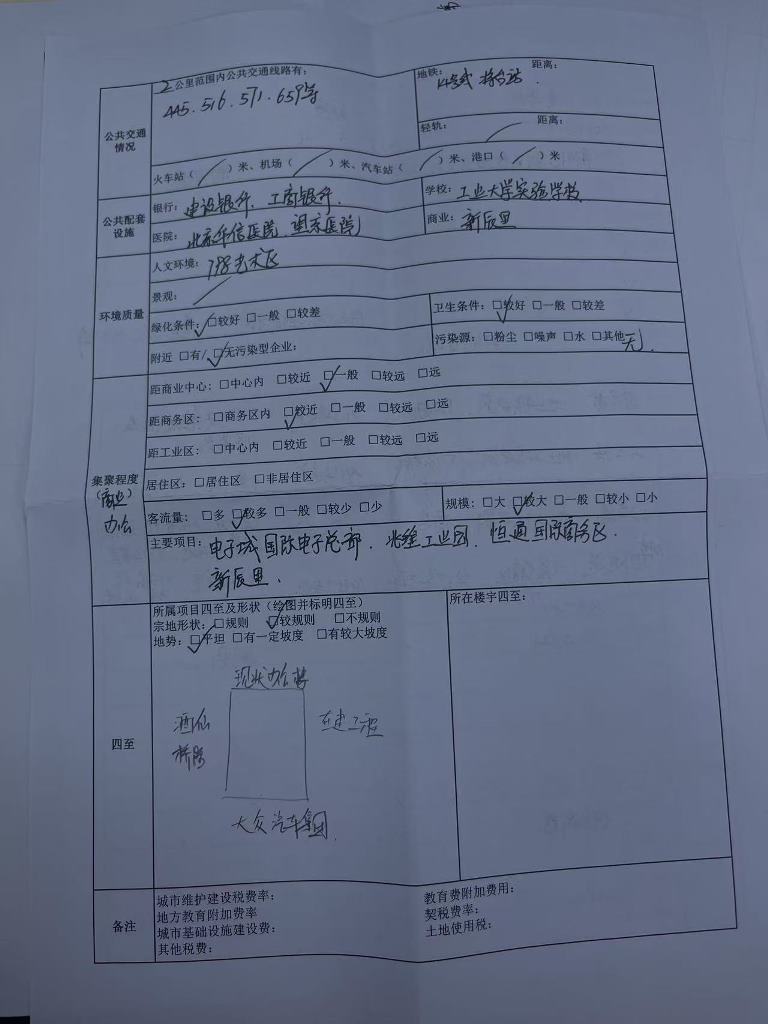 2公里范围内公共交通线路有：
445.516.571.659等
地铁： 距离：
14号线 将台站.
公共交通
情况
轻轨： / 距离：
火车站（ / ）米、机场（ / ）米、汽车站（ / ）米、港口（ / ）米
公共配套
设施
银行：建设银行、工商银行.
学校：工业大学实验学校
医院：北京华信医院、望京医院
商业：新辰里
环境质量
人文环境：798艺术区
景观： /
绿化条件：☑较好 □一般 □较差
卫生条件：☑较好 □一般 □较差
附近 □有/☑无污染型企业：
污染源：□粉尘 □噪声 □水 □其他无.
集聚程度
（商业）
办公
距商业中心：□中心内 □较近 ☑一般 □较远 □远
距商务区：□商务区内 ☑较近 □一般 □较远 □远
距工业区：□中心内 □较近 □一般 □较远 □远
居住区：□居住区 □非居住区
客流量：□多 ☑较多 □一般 □较少 □少
规模：□大 ☑较大 □一般 □较小 □小
主要项目：电子城国际电子总部、兆维工业园、恒通国际商务区.
新辰里、
四至
所属项目四至及形状（绘图并标明四至）
宗地形状：□规则 ☑较规则 □不规则
地势：☑平坦 □有一定坡度 □有较大坡度
所在楼宇四至：
现状办公楼
酒仙
桥路
在建工程
大众汽车集团.
备注
城市维护建设税费率：
教育费附加费用：
地方教育附加费率
契税费率：
城市基础设施建设费：
土地使用税：
其他税费：